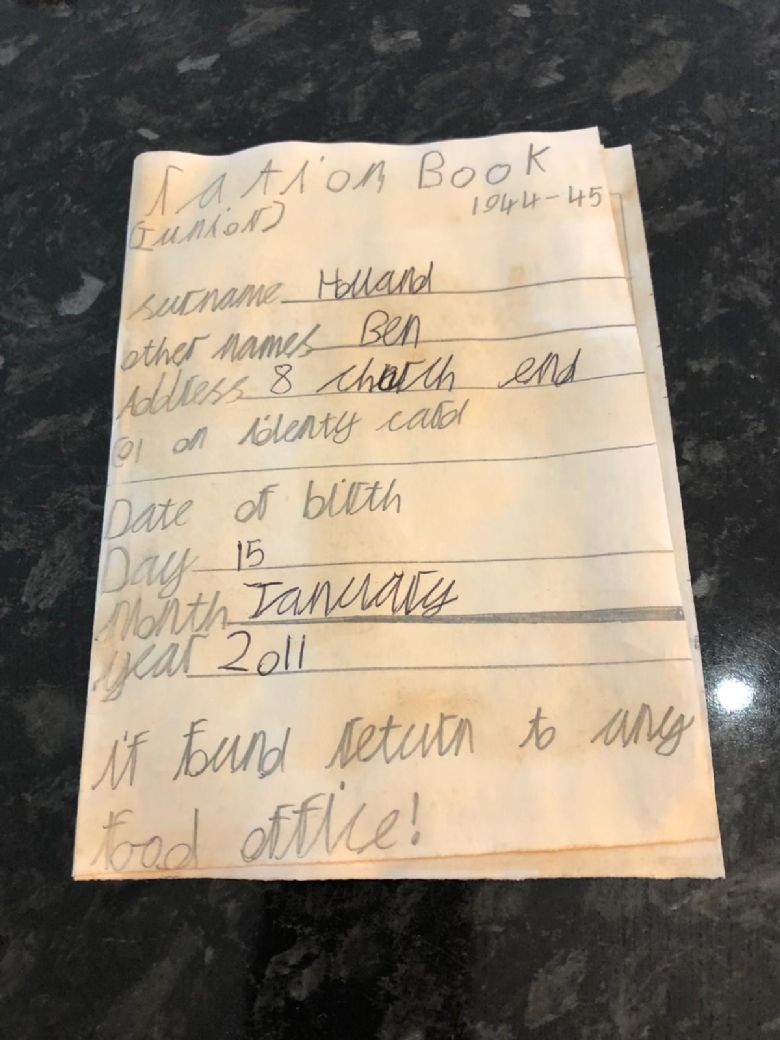 ration Book
(Junior)
1944-45
surname Holland
other names Ben
Address 8 church end
on identy card
Date of birth
Day 15
Month January
year 2011
if found return to any
food office!